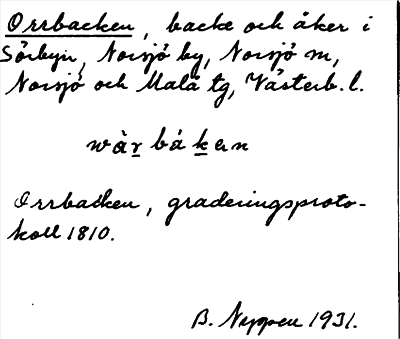 Orrbacken, backe och åker i
Sörbyn, Norsjö by, Norsjö sn,
Norsjö och Malå tg, Västerb. l.
wàr̲bák̲en
Orrbacken, graderingsproto-
koll 1810.
B. 1931.